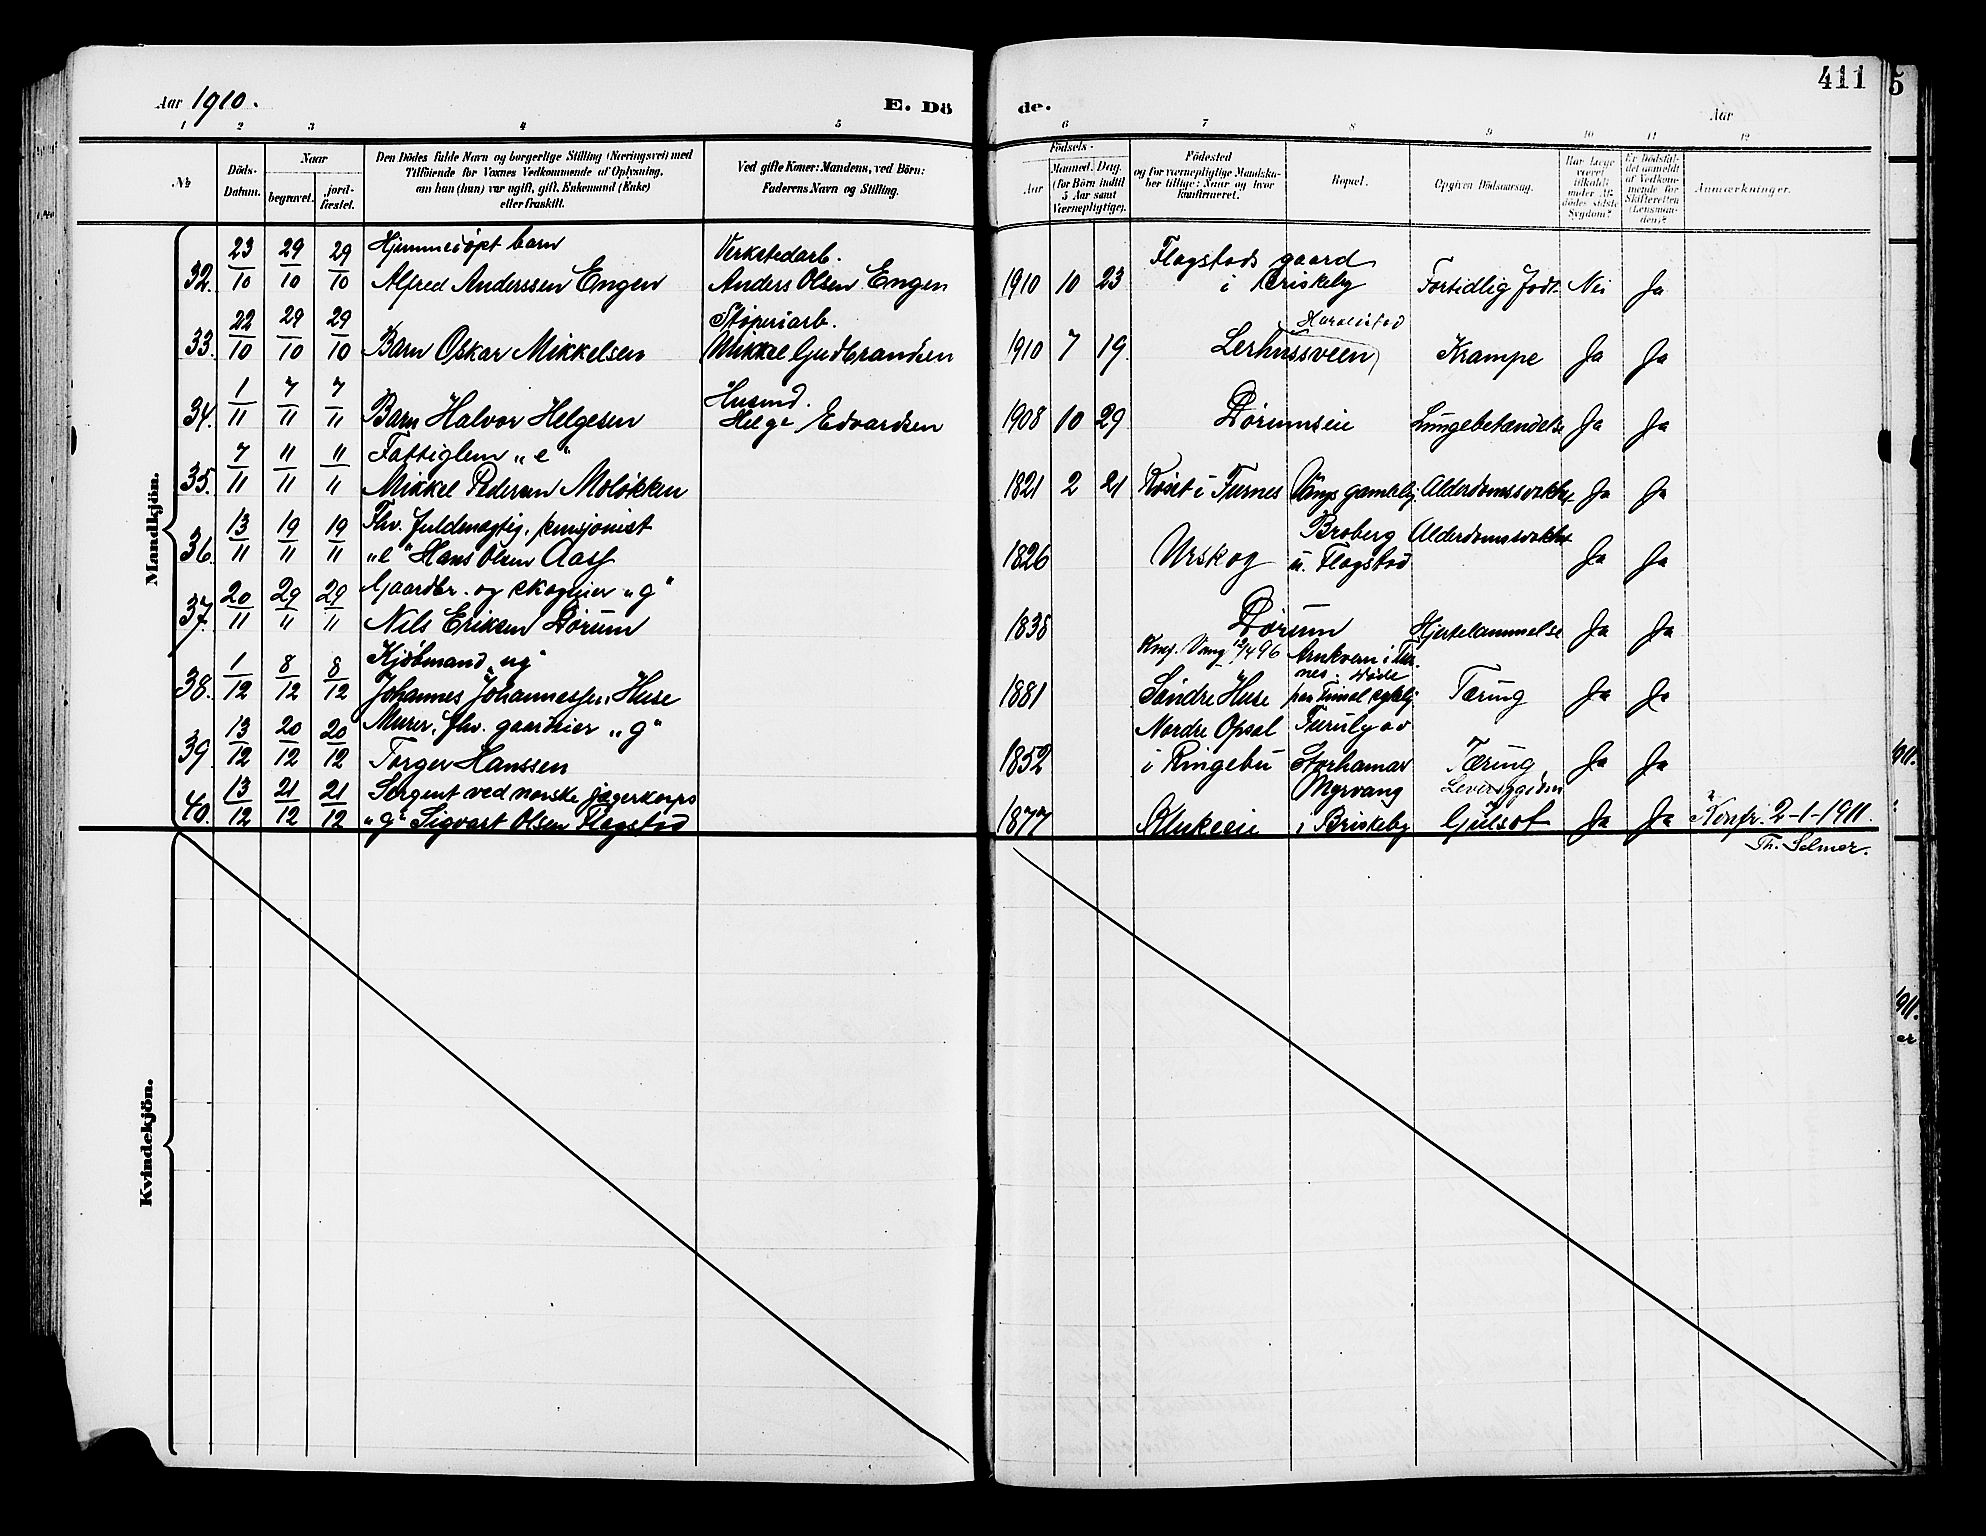 411
Aar 1910.
E. Dö
de.
Aar
1 2 3 4 5
6 7 8 9 10 11 12
№
Döds-
Datum.
Naar
begravet.
jord-
fæstet.
Den Dödes fulde Navn og borgerlige Stilling (Næringsvei) med
Tilföiende for Voxnes Vedkommende af Oplysning,
om han (hun) var ugift, gift, Enkemand (Enke)
eller fraskilt.
Ved gifte Koner: Mandens, ved Börn:
Faderens Navn og Stilling.
Födsels-
Aar
Maaned. Dag.
(for Börn indtil
5 Aar samt
Værnepligtige).
Födested
og for værnepligtige Mandska-
ber tillige: Naar og hvor
konfirmeret.
Bopæl.
Opgiven Dödsaarsag.
Har Læge
været
tilkaldt
under Af-
dödes sidste
Sygdom?
Er Dödsfal-
det anmeldt
af Vedkom-
mende for
Skifteretten
(Lensman-
den)?
Anmærkninger.
Mandkjön.
32. 23/10 29/10 29/10 Hjemmedøpt barn
Alfred Anderssen Engen
Verkstedarb.
Anders Olsen Engen
1910 10 23 Flagstads gaard
i Briskeby
Fortidlig født Nei Ja
33. 22/10 29/10 29/10 Barn Oskar Mikkelsen
Støperiarb.
Mikkel Gudbrandsen
1910 7 19 Lerhussveen Krampe Ja Ja
34. 1/11 7/11 7/11 Barn Halvor Helgesen
Husmd.
Helge Edvardsen
1908 10 29 Dørumseie Lungebetændelse Ja Ja
35. 7/11 11/11 11/11 Fattiglem „e“
Mikkel Pedersen Moløkken
1821 2 21 i Furnes Vangs gamlehj. Alderdomssvakhet Ja Ja
36. 13/11 19/11 19/11 Fhv. fuldmægtig, pensjonist
„e“ Hans Olsen Aas
1826 Urskog Broberg
u. Flagstad
Alderdomssvakhet Ja Ja
37. 20/11 29/11 29/11 Gaardbr. og skogeier „g“
Nils Eriksen Dørum
1838 Dørum Hjertelammelse Ja Ja
38. 1/12 8/12 8/12 Kjøbmand „ug“
Johannes Johannessen Huse
Konf. Vang 12/4 96
1881 Søndre Huse
Arnkvern i Fur-
nes. Døde
paa
Tæring Ja Ja
39. 13/12 20/12 20/12 Murer, fhv. gaardeier „g“
Torger Hanssen
1852 Nordre Opsal
i Ringebu
Furuly av
Storhamar
Tæring Ja Ja
40. 13/12 21/12 21/12 Sergent ved norske jægerkorps
„g“ Sigvart Olsen Flagstad
1877
Myrvang
i Briskeby
Gulsot Ja Ja Konfr. 2-1-1911.
Th. Selmer.
Kvindekjön.